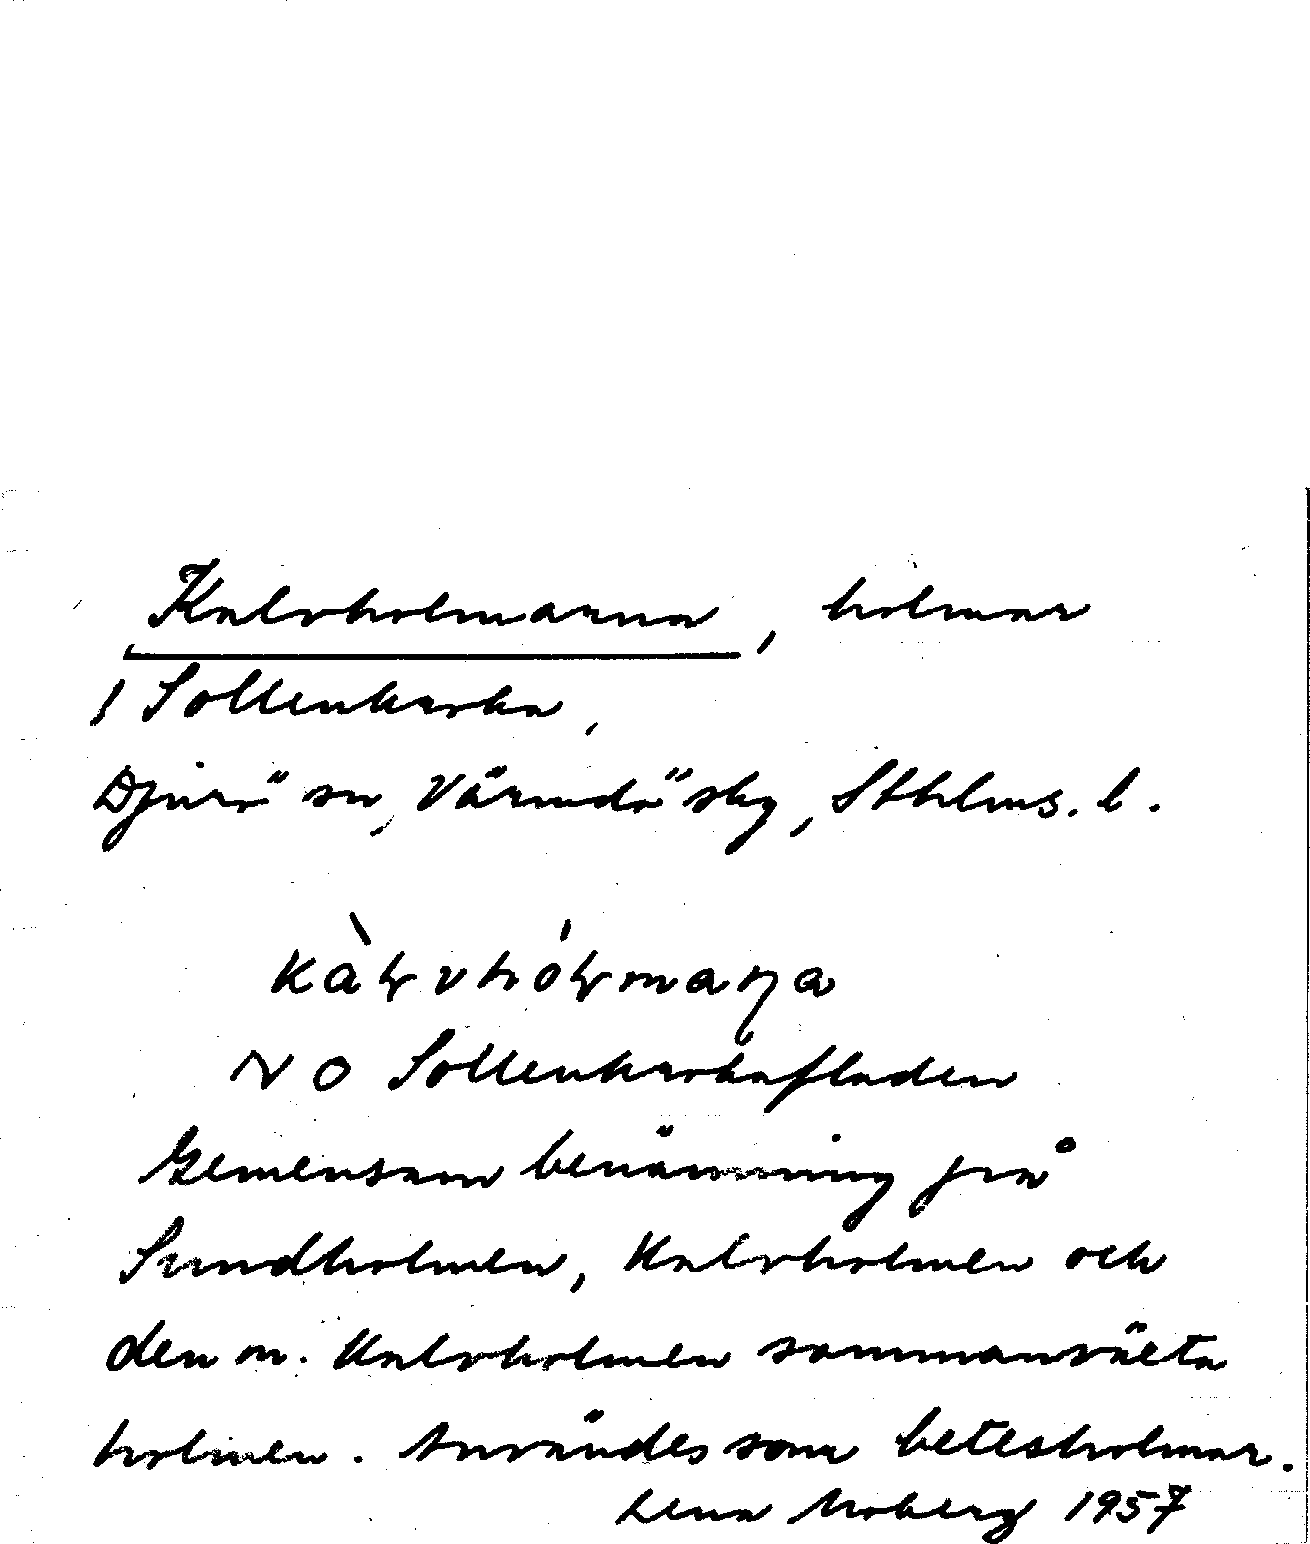 Kalvholmarna, holmar
i Sollenkroka,
Djurö sn, Värmdö skg, Sthlms. l.
kàɽvhóɽmaɳa
NO Sollenkrokafladen
Gemensam benämning på
Sundholmen, Kalvholmen och
den m. Kalvholmen sammanväxta
holmen. Användes som betesholmar.
Lena Moberg 1957